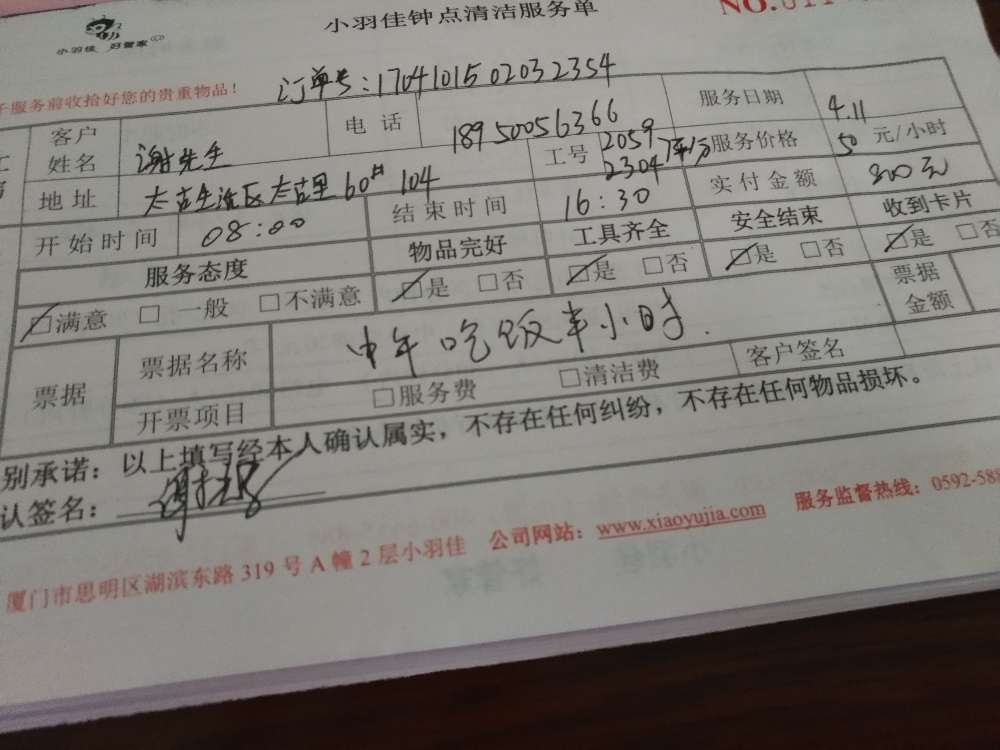 小羽佳钟点清洁服务单
小羽佳 好管家
服务前收拾好您的贵重物品!
订单号:1704101502032354
客户姓名 谢先生 电话 18950056366 服务日期 4.11
地址 太古生活区太古里60# 104 工号 2059 2304 服务价格 50 元/小时
开始时间 08:00 结束时间 16:30 实付金额 800元
服务态度 物品完好 工具齐全 安全结束 收到卡片
☑满意 □一般 □不满意 ☑是 □否 ☑是 □否 ☑是 □否 ☑是 □否
票据 票据名称 中午吃饭半小时. 票据金额
开票项目 □服务费 □清洁费 客户签名
别承诺:以上填写经本人确认属实,不存在任何纠纷,不存在任何物品损坏。
认签名:
厦门市思明区湖滨东路319号A幢2层小羽佳 公司网站:www.xiaoyujia.com 服务监督热线:0592-588